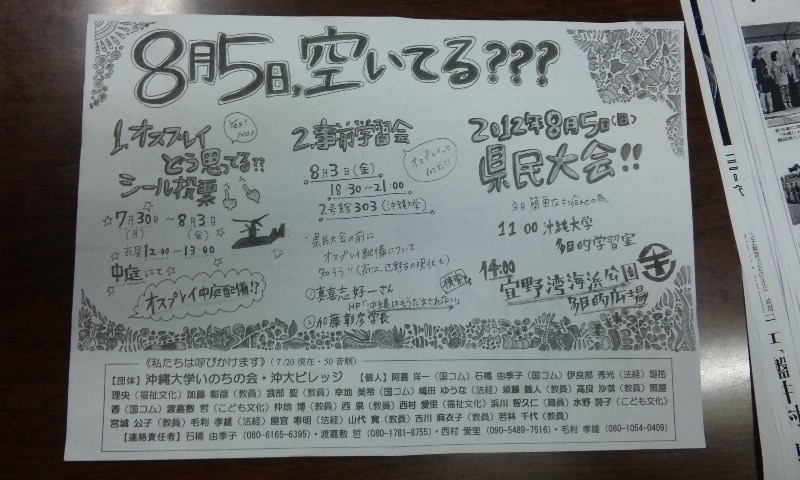 8月5日,空いてる???
1.オスプレイ
どう思ってる??
シール投票
Yes?
No?
☆7月30日～8月3日
(月) (金)
☆お昼12:00～13:00
中庭にて
オスプレイ中庭配備!?
2.事前学習会
8月3日(金)
18:30～21:00
2号館303(沖縄大学)
オスプレイって
何だ??
・県民大会の前に
オスプレイ配備について
知ろう!!
①真喜志好一さん
HP「沖縄はもうだまされない」
検索
②加藤彰彦学長
2012年8月5日(日)
県民大会!!
11:00 沖縄大学
多目的学習室
14:00
宜野湾海浜公園
多目的広場
《私たちは呼びかけます》(7/20現在・50音順)
【団体】沖縄大学いのちの会・沖大ビレッジ 【個人】阿嘉 洋一(国コム)石橋 由季子(国コム)伊良部 秀光(法経)垣花
理央(福祉文化)加藤 彰彦(教員)我部 聖(教員)幸地 美希(国コム)嶋田 ゆうな(法経)須藤 義人(教員)高良 沙哉(教員)照屋
香(国コム)渡嘉敷 哲(こども文化)仲地 博(教員)西 泉(教員)西村 愛里(福祉文化)浜川 智久仁(職員)水野 詩子(こども文化)
宮城 公子(教員)毛利 孝雄(法経)屋宜 寿明(法経)山代 寛(教員)吉川 麻衣子(教員)若林 千代(教員)
【連絡責任者】石橋 由季子(080-6165-6395)・渡嘉敷 哲(080-1781-8755)・西村 愛里(090-5489-7516)・毛利 孝雄(080-1054-0409)